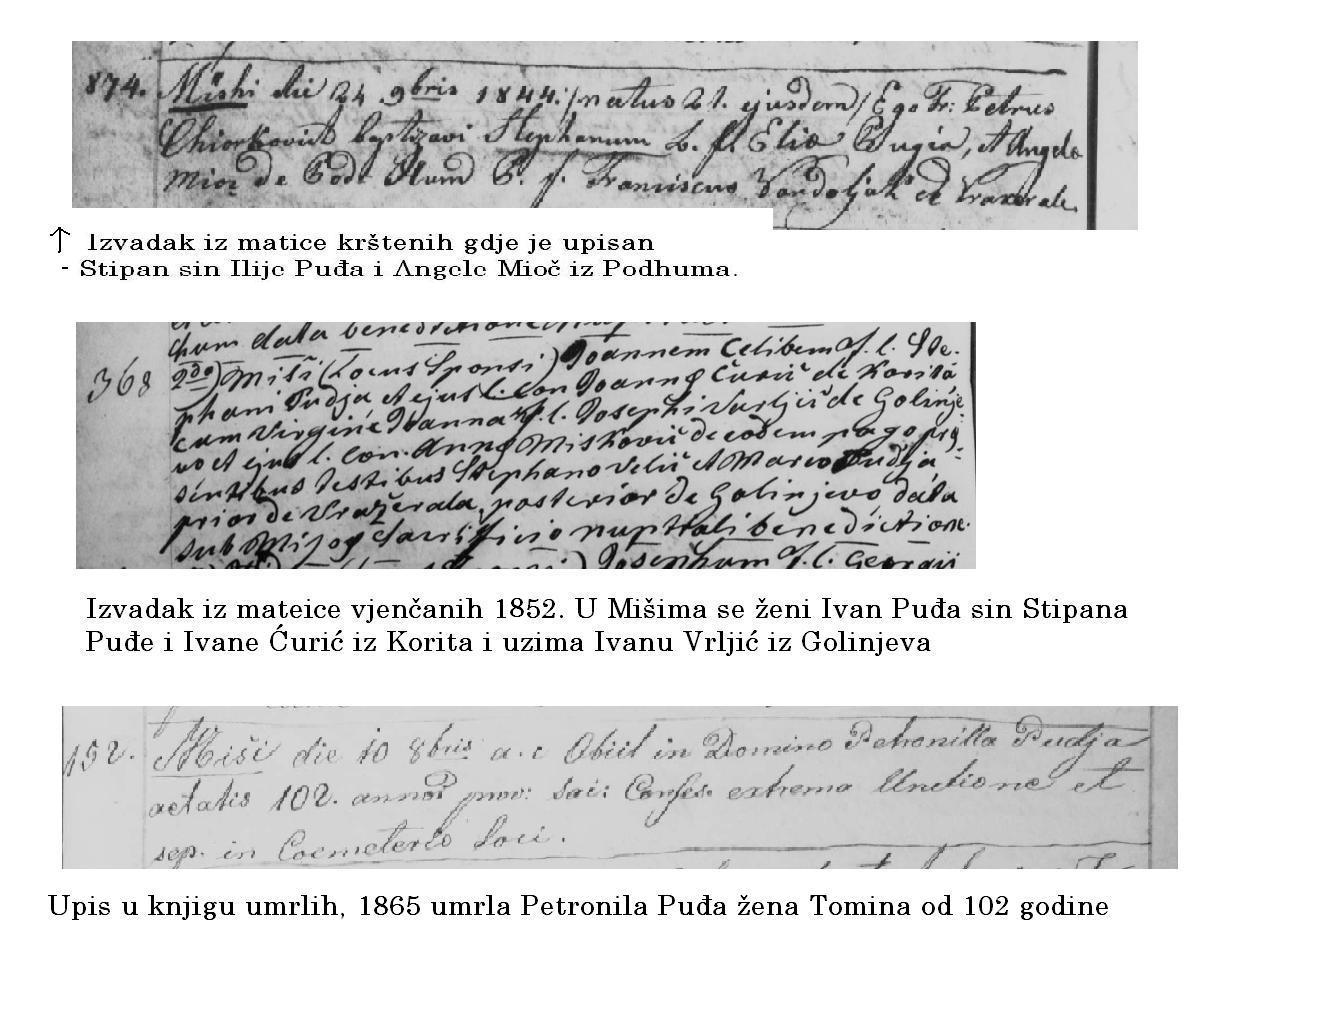 874. Mishi die 24 9bris 1844. /natus 21. ejusdem/ Ego Fr: Petrus
baptizavi Stephanum L. f. Eliæ Pugia, et Angela
Mioz de Franciscus et
↑ Izvadak iz matice krštenih gdje je upisan
- Stipan sin Ilije Puđa i Angele Mioč iz Podhuma.
data
368 2do) Miši (Locus Sponsi) Joannem Celibem f. l. Ste-
phani Pudja et ejus l. con Joanna Čurič de Korita
cum Virgine Joanna f. l. Josephi Vurljič de Golinje-
vo et ejus l. con. Anna Miskovič de eodem pago pre-
sentibus testibus Stephano Velič et Marco Pudja
prior de posterior de Golinjevo data
sub nuptiali benedictione.
Josephum f. l. Georgii
152. Miši die 10 8bris a. c Obiit in Domino Petronilla Pudja
aetatis 102. annor prov: sac: Confes. extrema Unctione et
sep. in Coemeterio Loci.
Izvadak iz mateice vjenčanih 1852. U Mišima se ženi Ivan Puđa sin Stipana
Puđe i Ivane Ćurić iz Korita i uzima Ivanu Vrljić iz Golinjeva
Upis u knjigu umrlih, 1865 umrla Petronila Puđa žena Tomina od 102 godine